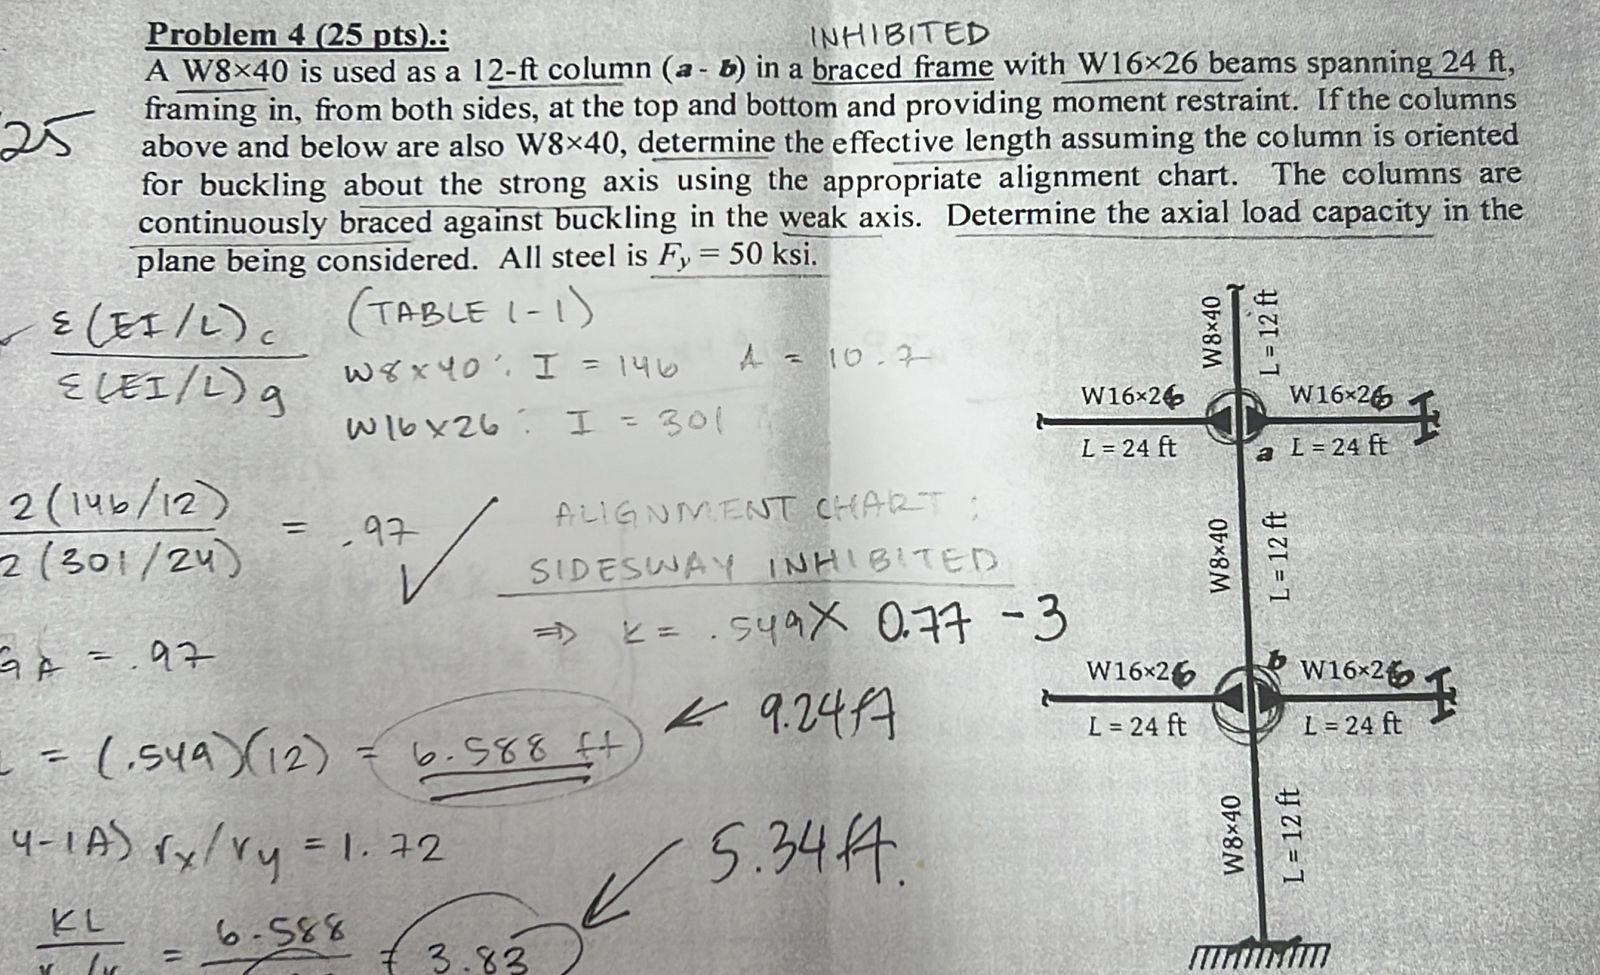 Problem 4 (25 pts).:
INHIBITED
A W8×40 is used as a 12-ft column (a - b) in a braced frame with W16×26 beams spanning 24 ft,
framing in, from both sides, at the top and bottom and providing moment restraint. If the columns
25
above and below are also W8×40, determine the effective length assuming the column is oriented
for buckling about the strong axis using the appropriate alignment chart. The columns are
continuously braced against buckling in the weak axis. Determine the axial load capacity in the
plane being considered. All steel is Fy = 50 ksi.
Σ(EI/L)c
Σ(EI/L)g
(TABLE 1-1)
W8×40: I = 146 A = 10.7
W16×26: I = 301
2(146/12)
2(301/24)
= .97 ✓
ALIGNMENT CHART:
SIDESWAY INHIBITED
⇒ K = .549X 0.77 -3
GA = .97
= (.549)(12) = 6.588 ft
← 9.24ft
4-1A) rx/ry = 1.72
5.34ft.
KL
= 6.588
= 3.83
W8×40
L = 12 ft
W16×26
W16×26
L = 24 ft
a
L = 24 ft
W8×40
L = 12 ft
b
W16×26
W16×26
L = 24 ft
L = 24 ft
W8×40
L = 12 ft